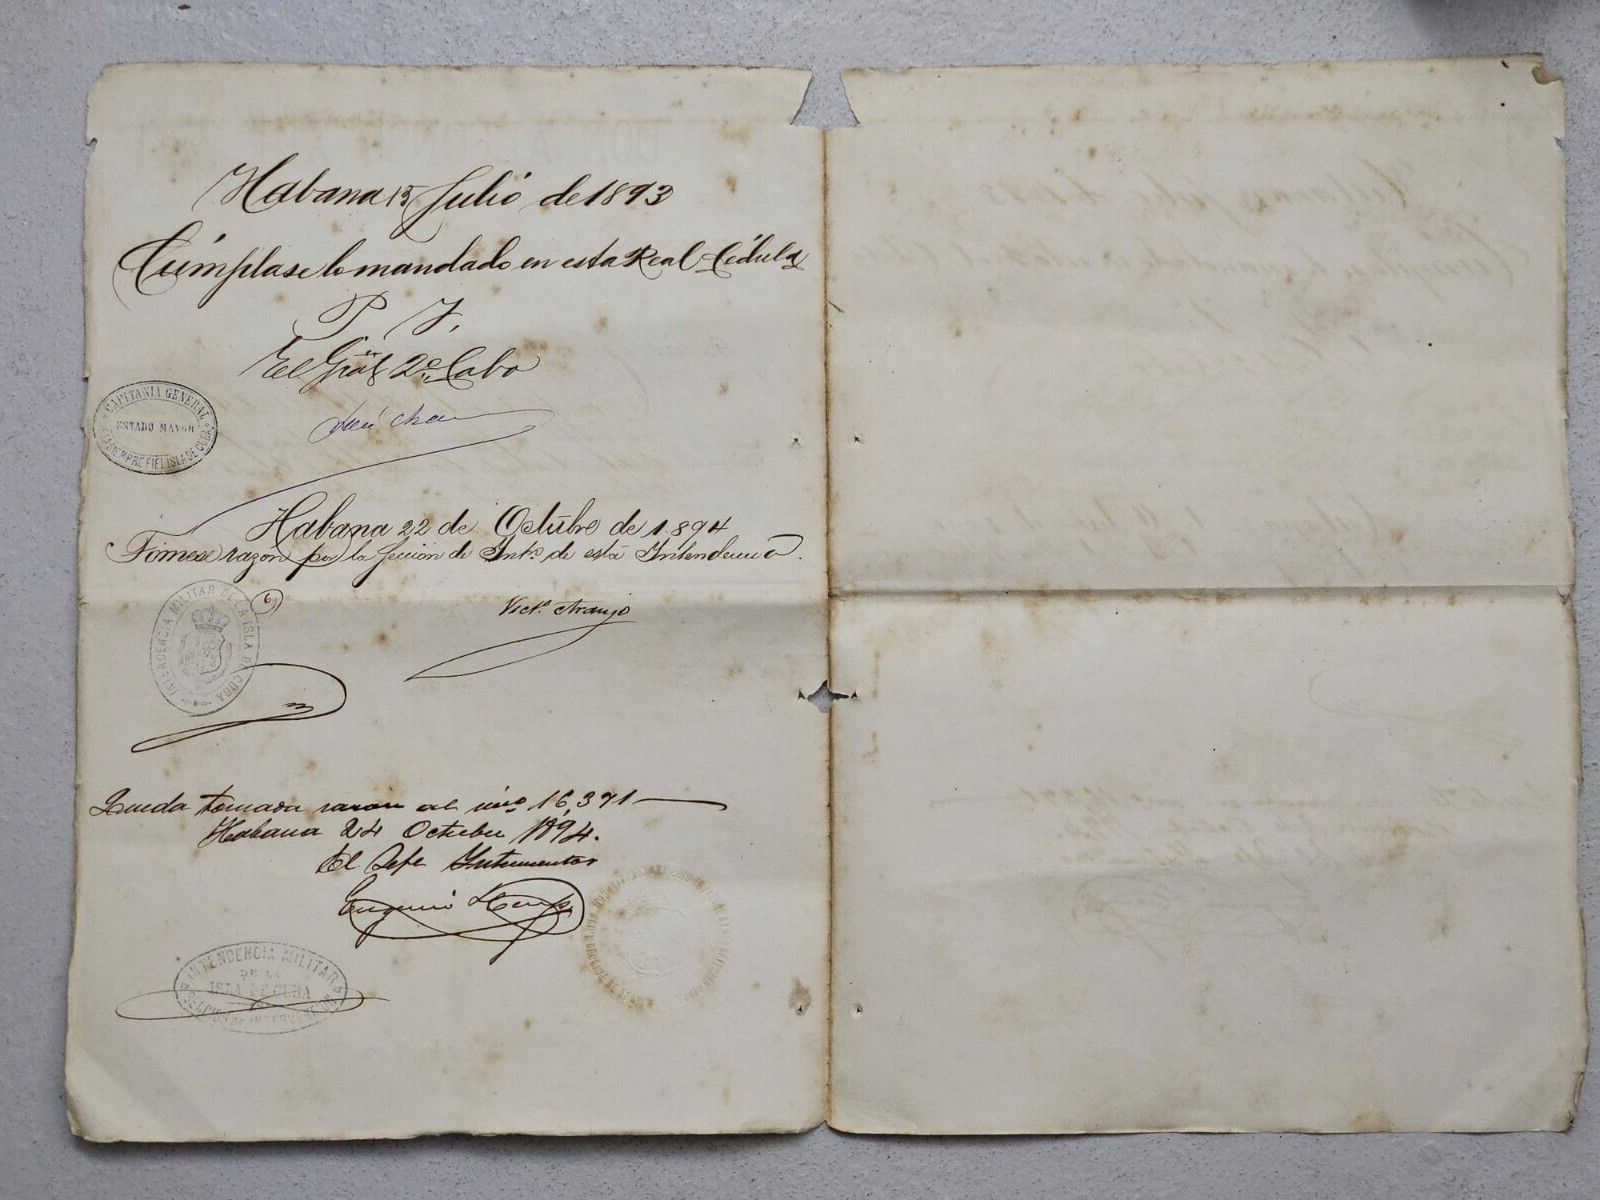 Habana 15 Julio de 1893
Cúmplase lo mandado en esta Real Cédula
P. Y.
El Gral 2º Cabo
CAPITANIA GENERAL
ESTADO MAYOR
SIEMPRE FIEL ISLA DE CUBA
Habana 22 de Octubre de 1894
Tómese razon por la Seccion de Intn. de esta Intendencia.
6
INTENDENCIA MILITAR DE LA ISLA DE CUBA
Vict. Araujo
Queda tomada razon al núº 16,371
Habana 24 Octubre 1894.
El Jefe Interventor
Eugenio
INTENDENCIA MILITAR
DE LA
ISLA DE CUBA
SECCION DE INTERVENCION